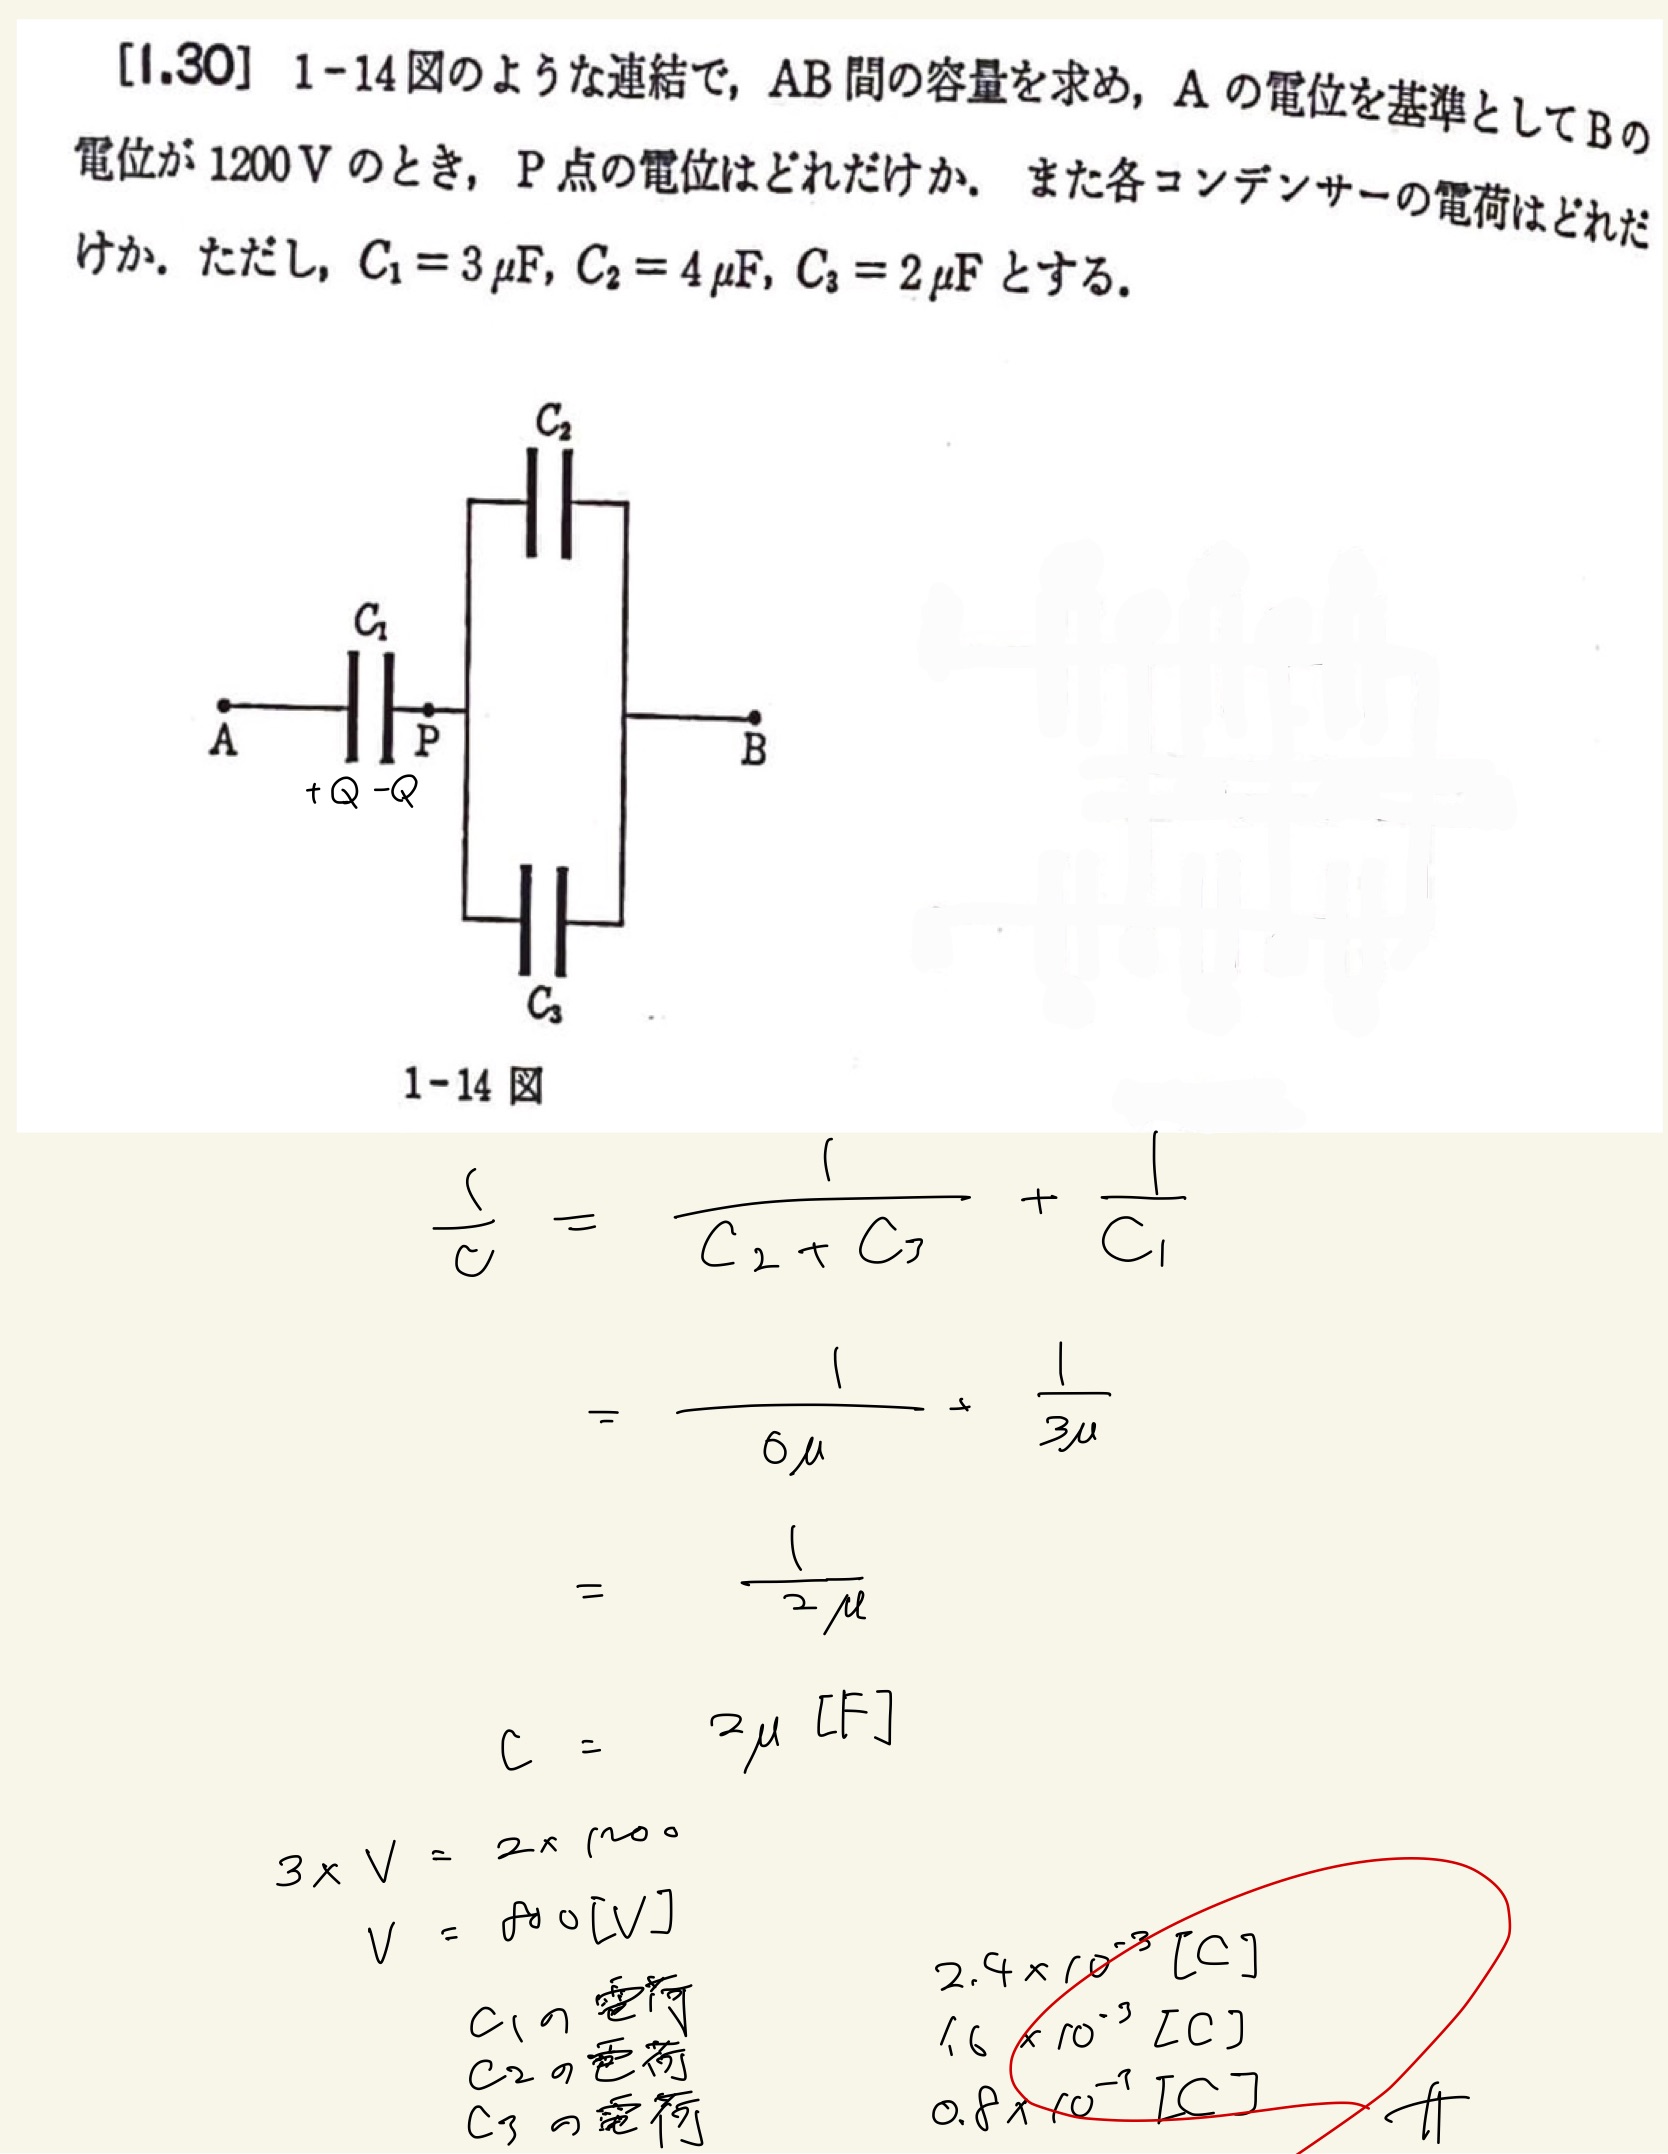 [1.30] 1-14図のような連結で, AB間の容量を求め, Aの電位を基準としてBの
電位が1200Vのとき, P点の電位はどれだけか. また各コンデンサーの電荷はどれだ
けか. ただし, C₁ = 3μF, C₂ = 4μF, C₃ = 2μF とする.
C₂
C₁
A P B
+Q -Q
C₃
1-14 図
1/C = 1/(C₂+C₃) + 1/C₁
= 1/6μ + 1/3μ
= 1/2μ
C = 2μ [F]
3×V = 2×1200
V = 800[V]
C₁の電荷 2.4×10⁻³ [C]
C₂の電荷 1.6×10⁻³ [C]
C₃の電荷 0.8×10⁻³ [C]